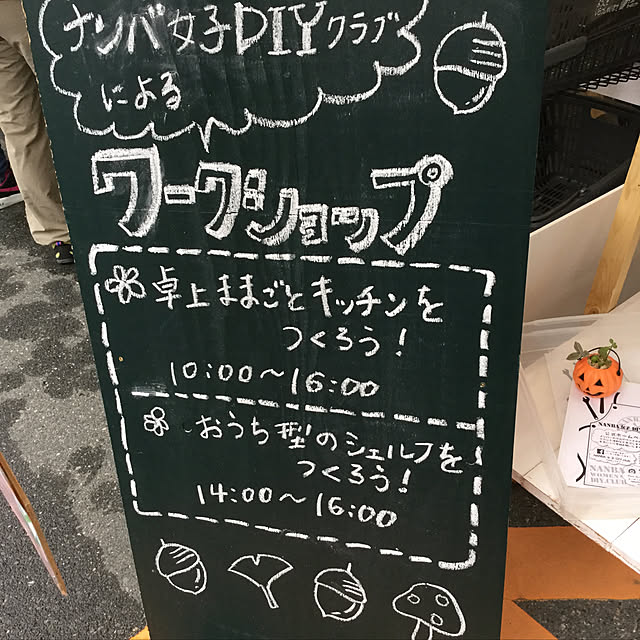 ナンバ女子DIYクラブ
による
ワークショップ
卓上ままごとキッチンを
つくろう!
10:00〜16:00
おうち型のシェルフを
つくろう!
14:00〜16:00
NANBA女子DI
NANBA
WOMEN'S
DIY.CLUB